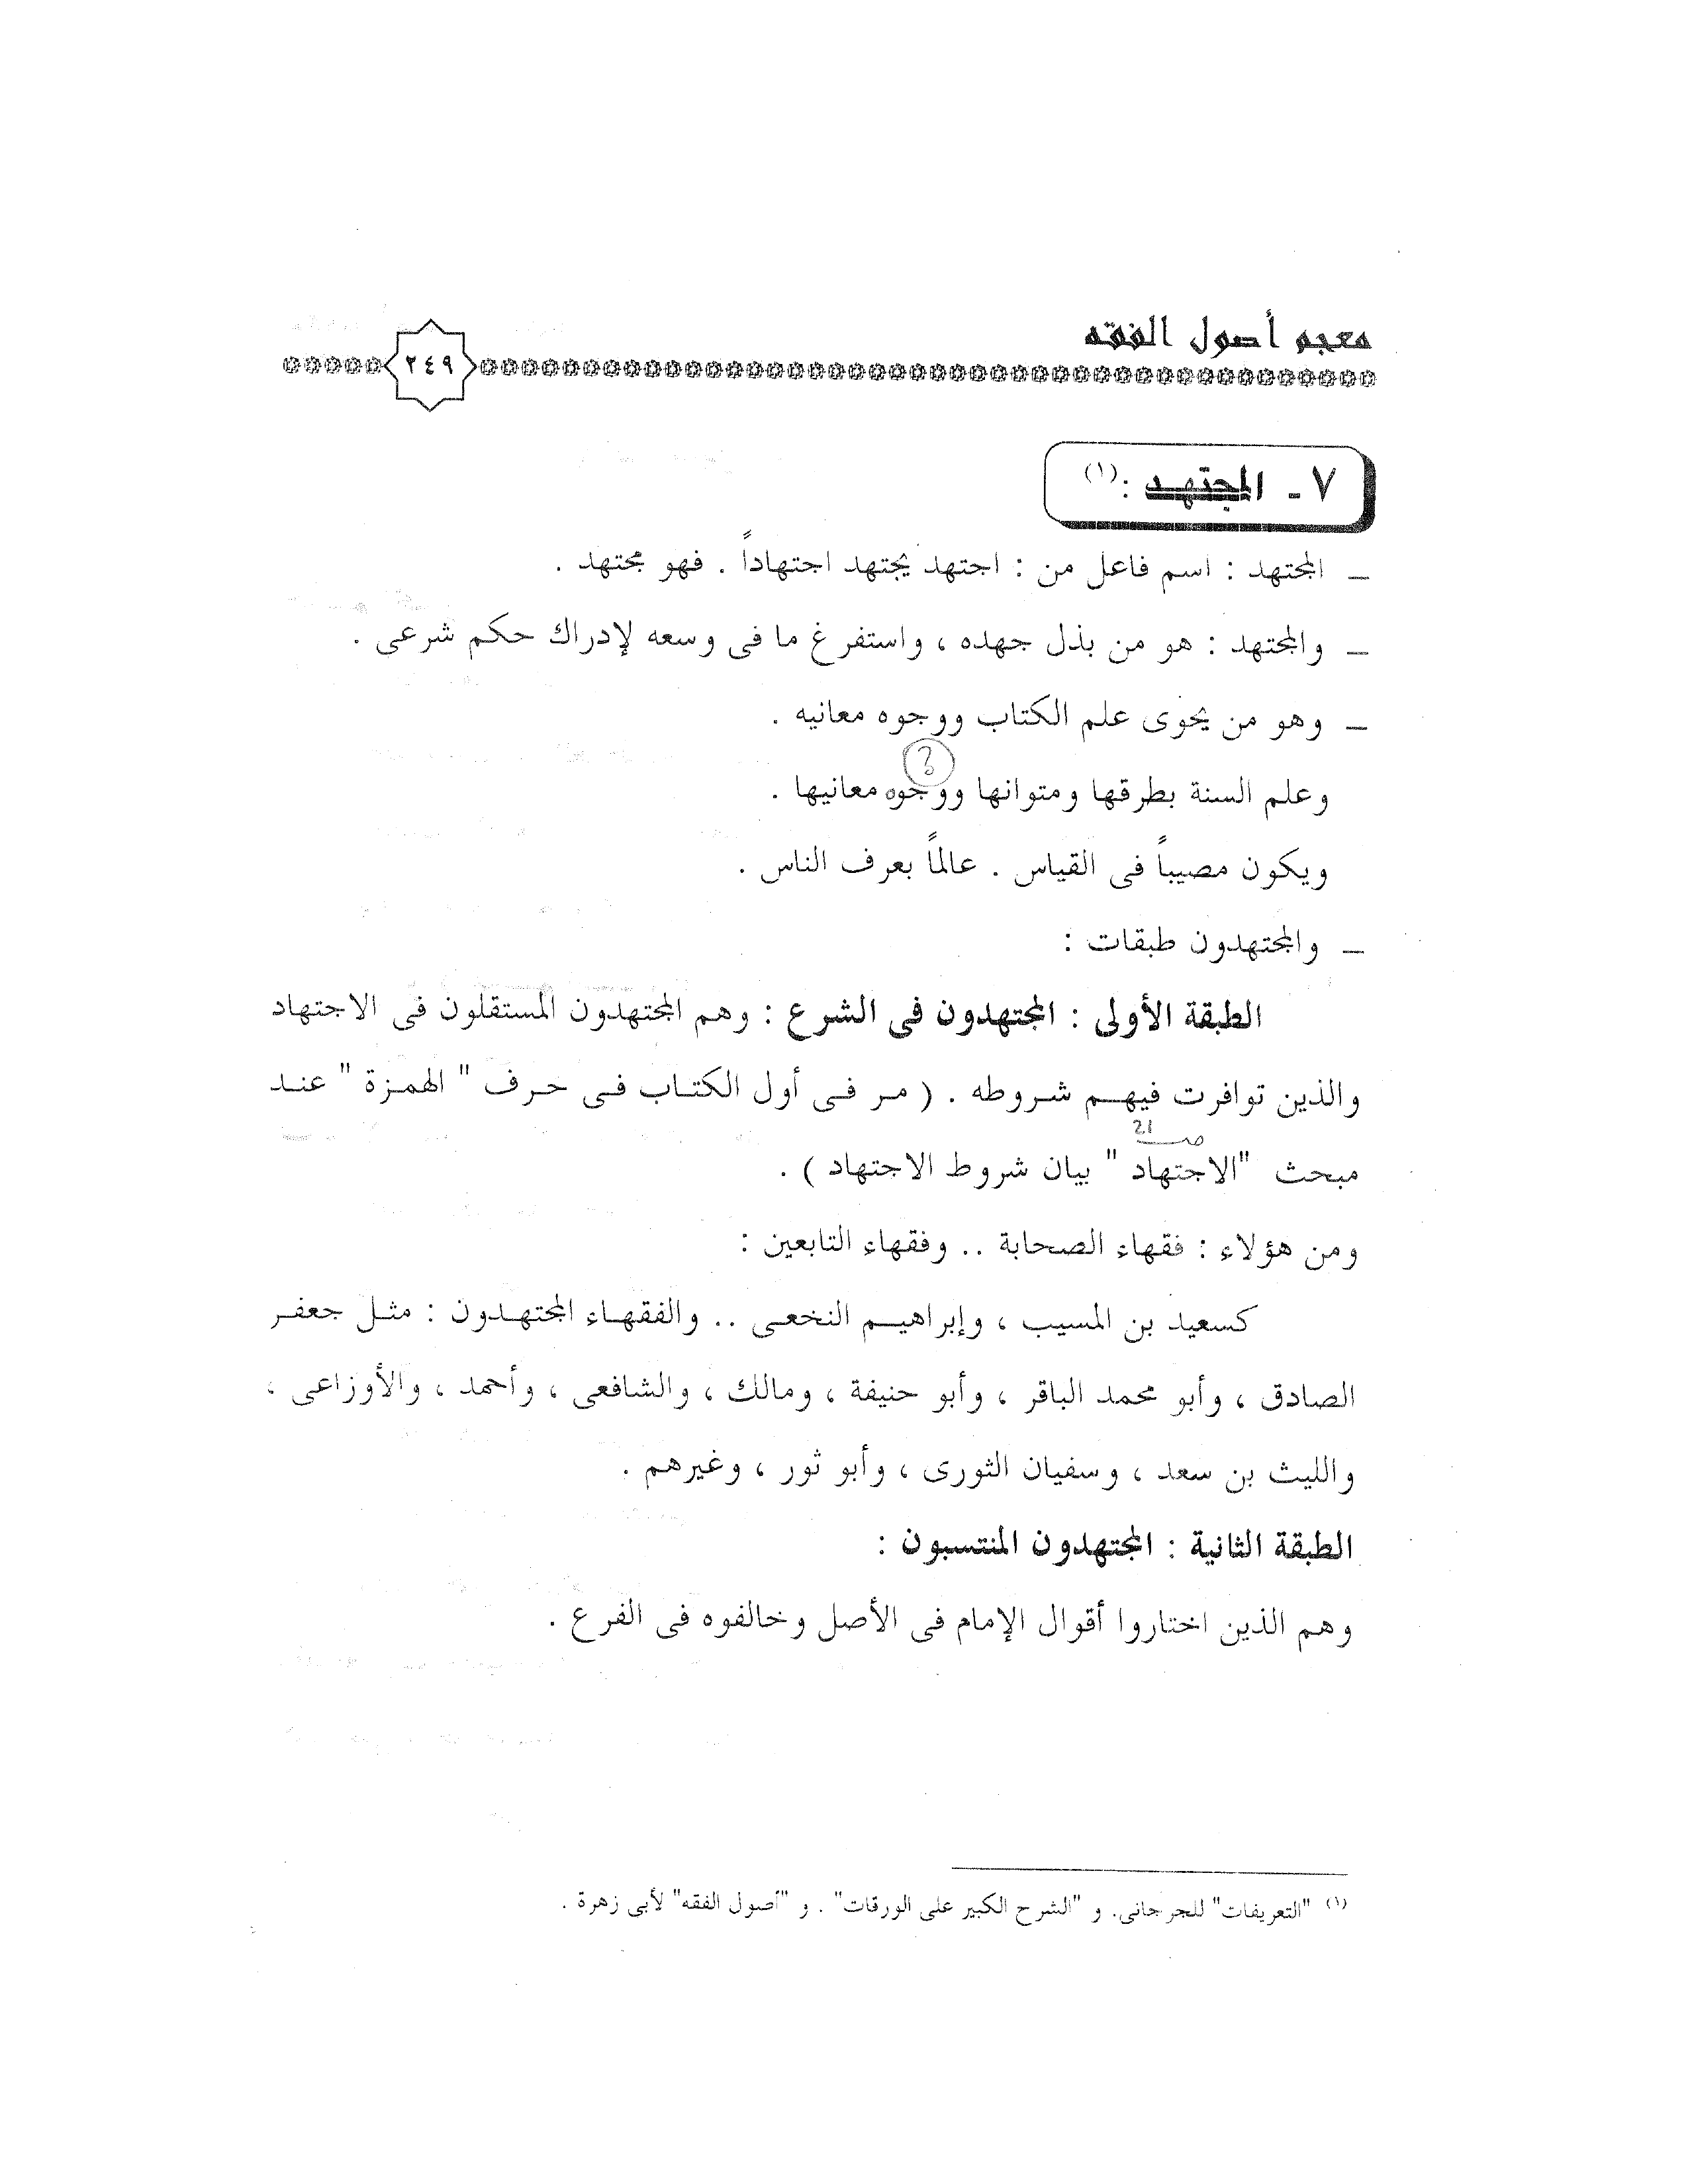 معجم أصول الفقه
٢٤٩
٧ ـ المجتهد :(١)
ـ المجتهد : اسم فاعل من : اجتهد يجتهد اجتهاداً . فهو مجتهد .
ـ والمجتهد : هو من بذل جهده ، واستفرغ ما فى وسعه لإدراك حكم شرعى .
ـ وهو من يحوى علم الكتاب ووجوه معانيه .
؟
وعلم السنة بطرقها ومتوانها ووجوه معانيها .
ويكون مصيباً فى القياس . عالماً بعرف الناس .
ـ والمجتهدون طبقات :
الطبقة الأولى : المجتهدون فى الشرع : وهم المجتهدون المستقلون فى الاجتهاد
والذين توافرت فيهم شروطه . ( مر فى أول الكتاب فى حرف " الهمزة " عند
صـ 21
مبحث "الاجتهاد " بيان شروط الاجتهاد ) .
ومن هؤلاء : فقهاء الصحابة .. وفقهاء التابعين :
كسعيد بن المسيب ، وإبراهيم النخعى .. والفقهاء المجتهدون : مثل جعفر
الصادق ، وأبو محمد الباقر ، وأبو حنيفة ، ومالك ، والشافعى ، وأحمد ، والأوزاعى ،
والليث بن سعد ، وسفيان الثورى ، وأبو ثور ، وغيرهم .
الطبقة الثانية : المجتهدون المنتسبون :
وهم الذين اختاروا أقوال الإمام فى الأصل وخالفوه فى الفرع .
(١) "التعريفات" للجرجانى. و "الشرح الكبير على الورقات" . و "أصول الفقه" لأبى زهرة .